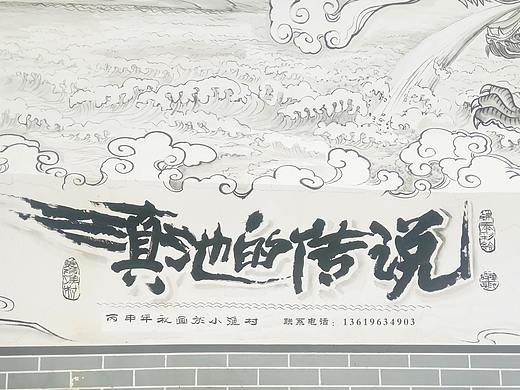 真池的传说
丙申年秋画于小渔村 联系电话：13619634903